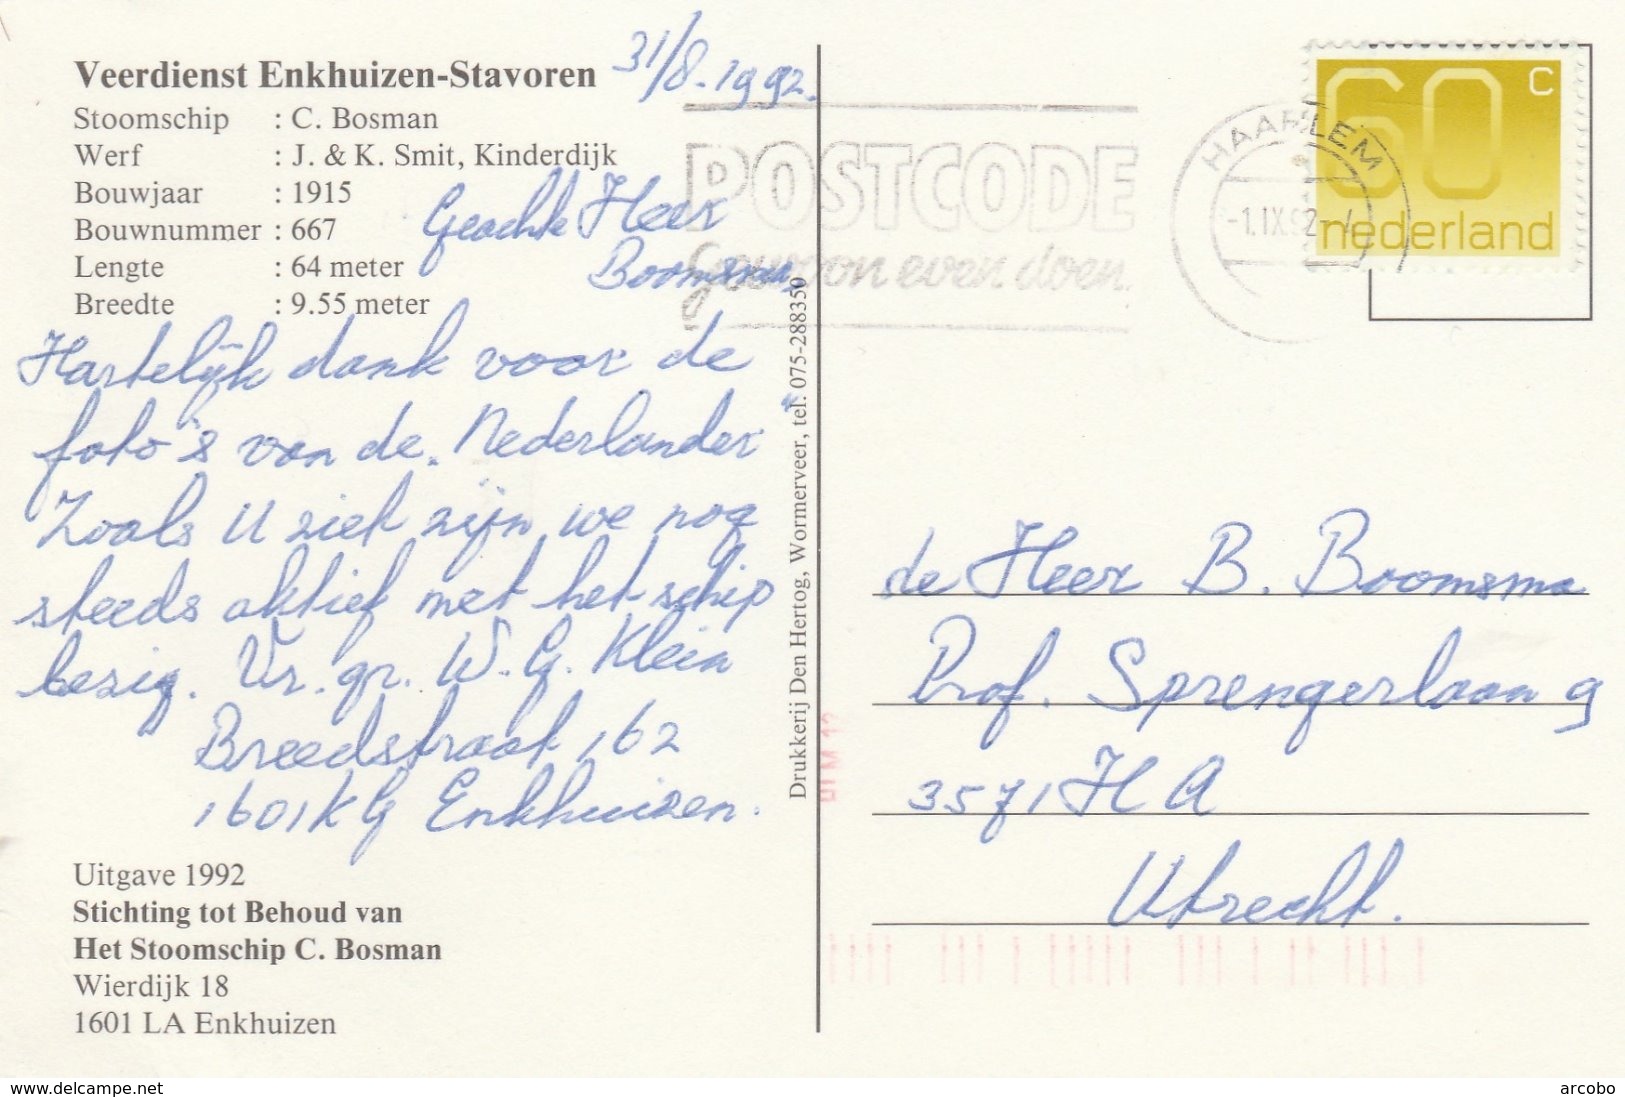 31/8.1992.
Veerdienst Enkhuizen-Stavoren
Stoomschip : C. Bosman
Werf : J. & K. Smit, Kinderdijk
Bouwjaar : 1915
Bouwnummer : 667
Lengte : 64 meter
Breedte : 9.55 meter
Geachte Heer
Boomsma,
Hartelijk dank voor de
foto's van de „Nederlander”
Zoals U ziet zijn we nog
steeds aktief met het schip
bezig. Vr. gr. W. G. Klein
Breedstraat 162
1601KG Enkhuizen.
Uitgave 1992
Stichting tot Behoud van
Het Stoomschip C. Bosman
Wierdijk 18
1601 LA Enkhuizen
Drukkerij Den Hertog, Wormerveer, tel. 075-288350
POSTCODE
Gewoon even doen.
HAARLEM
-1.IX.92
60 c
nederland
de Heer B. Boomsma
Prof. Sprengerlaan 9
3571 HA
Utrecht.
www.delcampe.net
arcobo